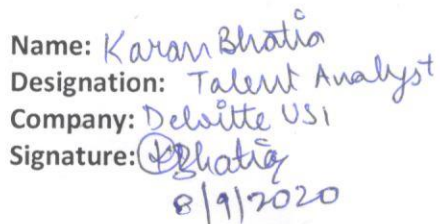 Name: Karan Bhatia
Designation: Talent Analyst
Company: Deloitte USI
Signature: KBhatia
8/9/2020